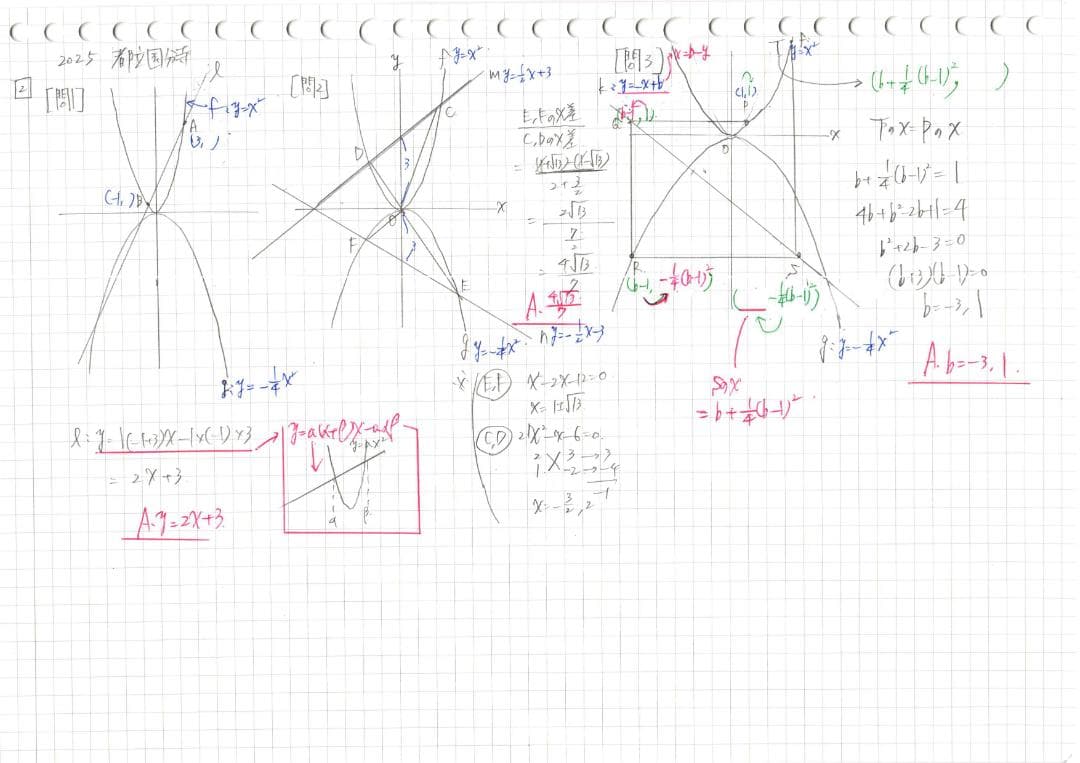 2025 都立国分寺
2
[問1]
l
f: y=x²
A
(3, )
(-1, )B
g: y=-1/4x²
l: y=1(-1+3)x-1×(-1)×3
= 2x+3
A. y=2x+3
y=a(α+β)x-aαβ
y=ax²
α
β
[問2]
y
f y=x²
m y=1/2x+3
C
D
3
x
O
3
F
E
n y=-1/2x-3
g y=-1/4x²
E,Fのx差
C,Dのx差
= (1+√13)-(1-√13) / 2+3/2
= 2√13 / 7/2
= 4√13/7
(E,F) x²-2x-12=0
x=1±√13
(C,D) 2x²-x-6=0
2 3→3
1 -2→-4
-1
x=-3/2, 2
[問3]
x=b-y
k: y=-x+b
f: y=x²
T
(1,1)
P
Q
x
O
R
(b-1, -1/4(b-1)²)
S
( -1/4(b-1)²)
g: y=-1/4x²
Sのx
= b+1/4(b-1)²
(b+1/4(b-1)², )
Tのx=Pのx
b+1/4(b-1)²=1
4b+b²-2b+1=4
b²+2b-3=0
(b+3)(b-1)=0
b=-3, 1
A. b=-3, 1.